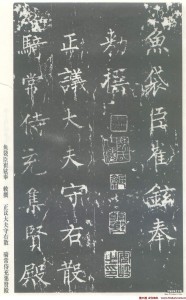 魚袋臣崔鉉奉
敕撰
正議大夫守右散
騎常侍充集賢殿
魚袋臣崔鉉奉 敕撰 正議大夫守右散 騎常侍充集賢殿